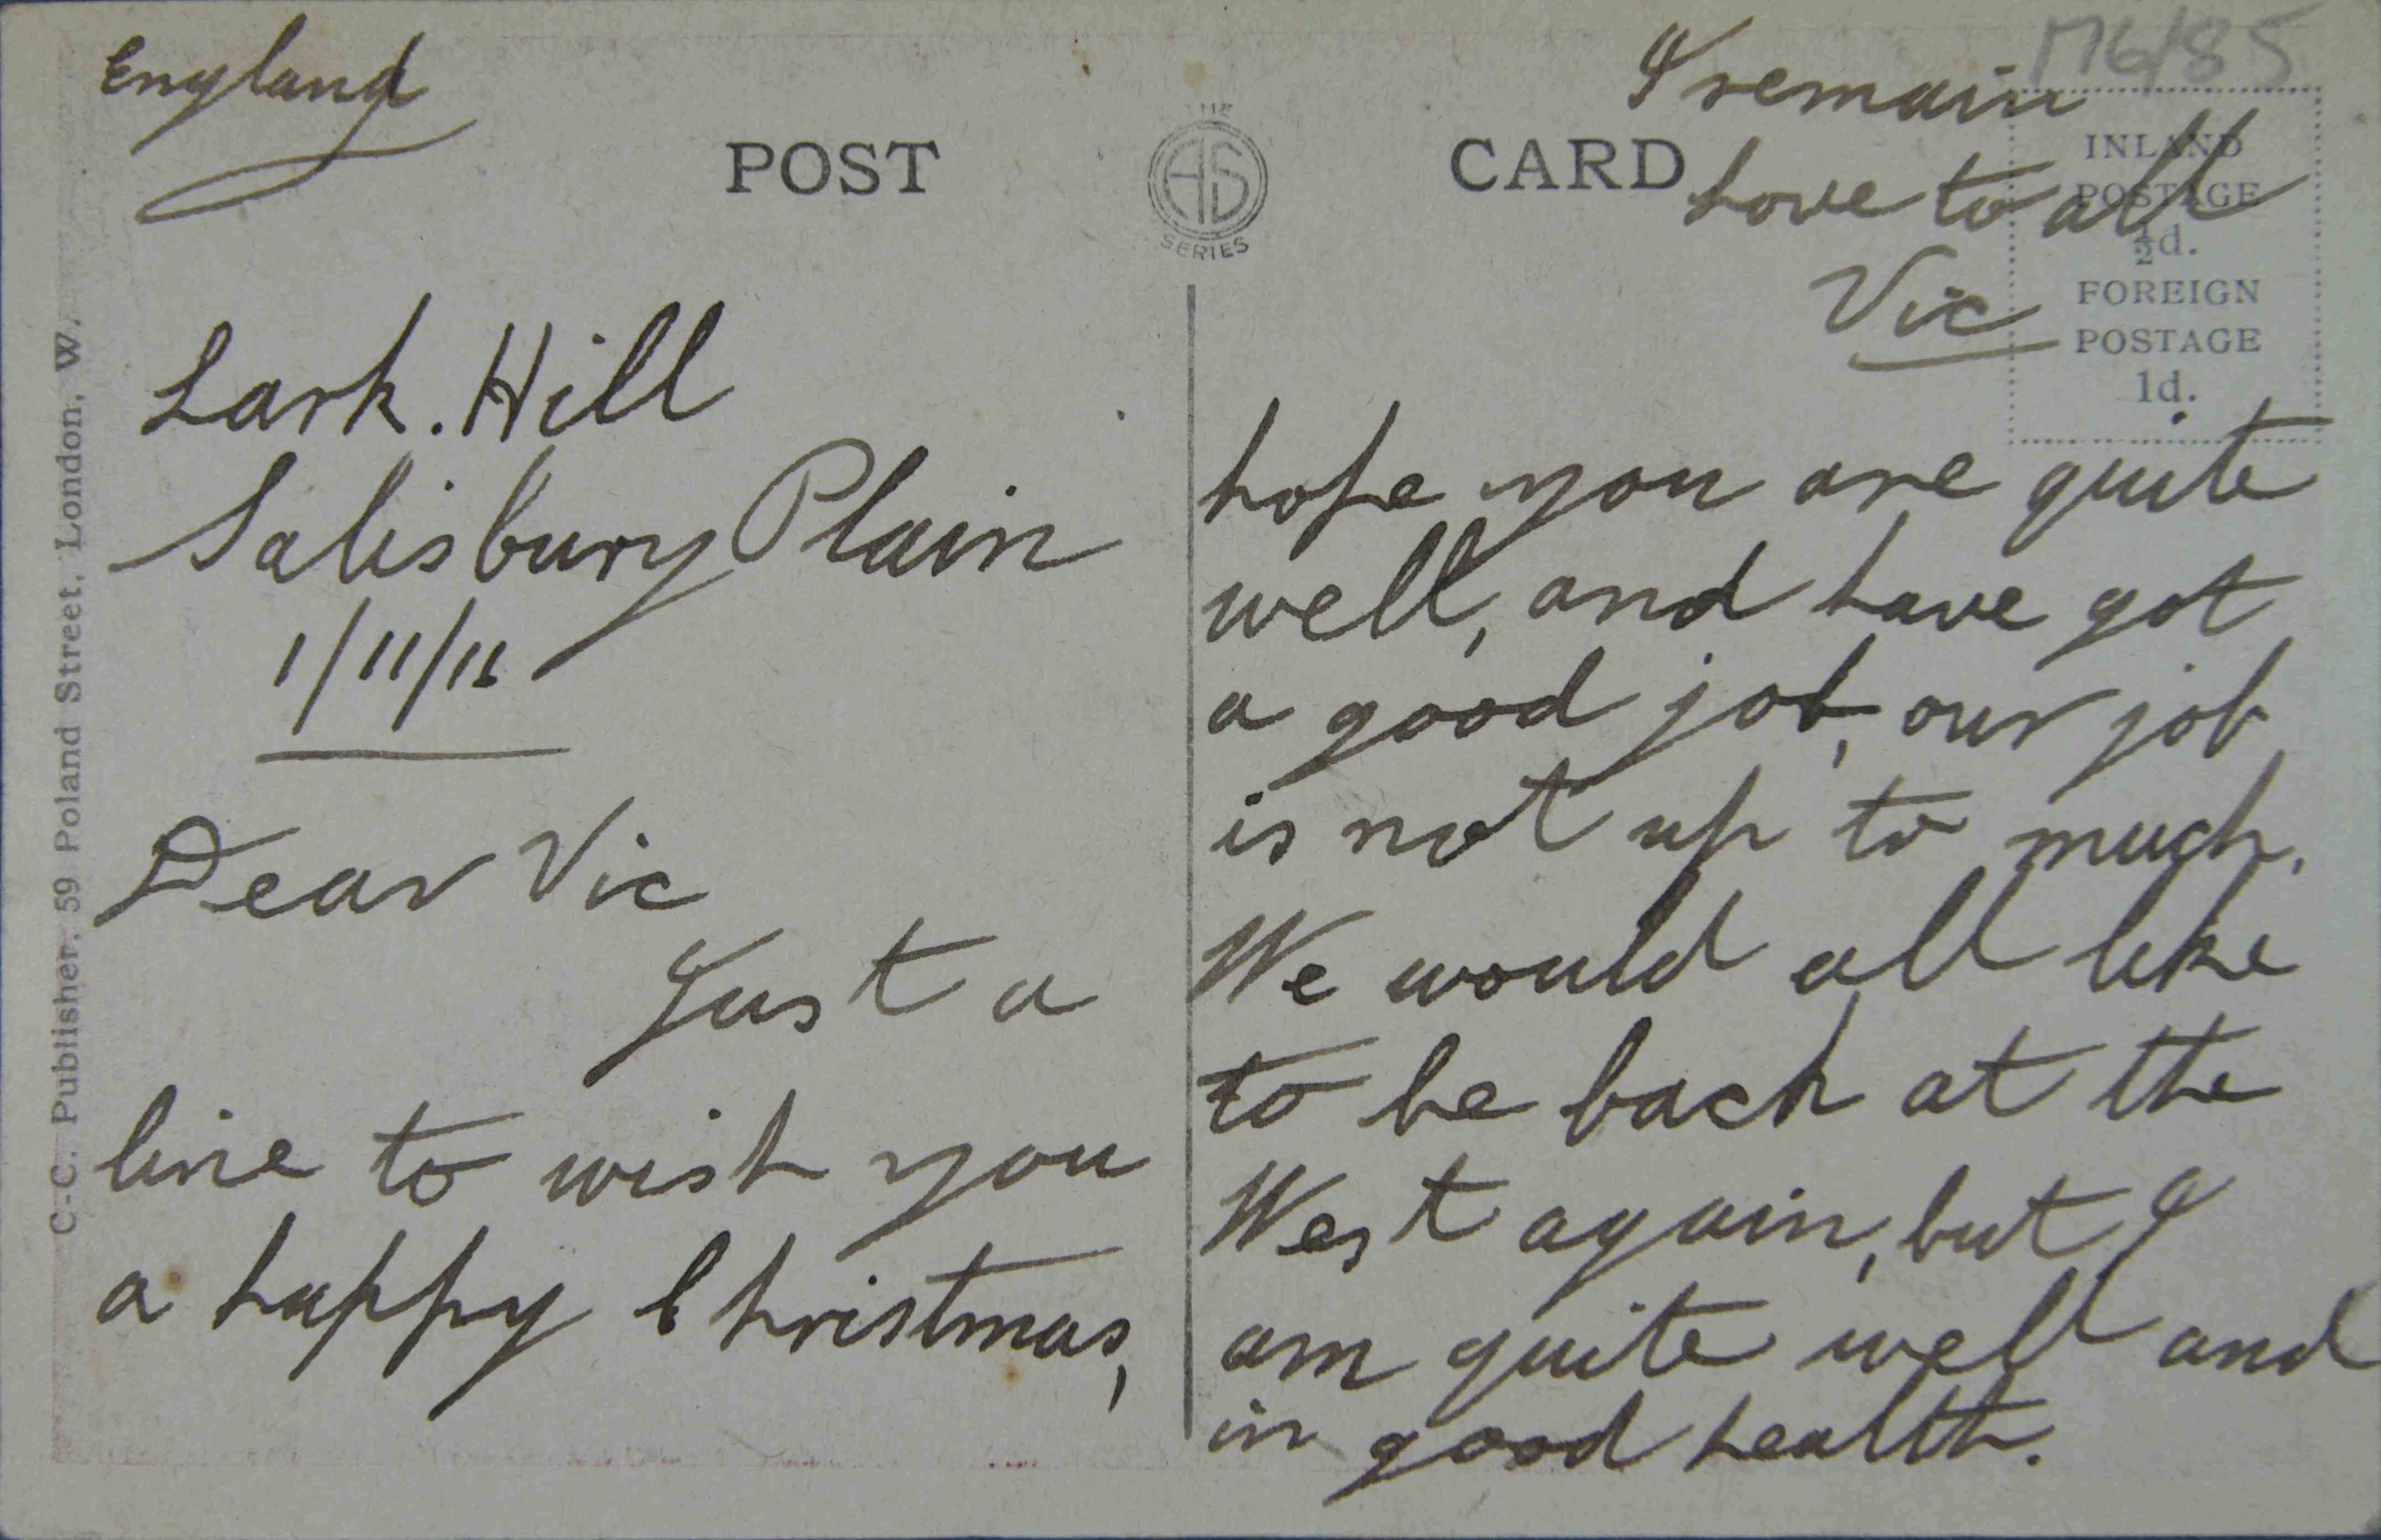 England
POST CARD
A S
SERIES
176/85
INLAND
POSTAGE
½d.
FOREIGN
POSTAGE
1d.
C.-C. Publisher, 59 Poland Street, London, W.
Lark. Hill
Salisbury Plain
1/11/16
Dear Vic
Just a
line to wish you
a happy Christmas,
hope you are quite
well, and have got
a good job, our job
is not up to much.
We would all like
to be back at the
West again, but I
am quite well and
in good health.
I remain
Love to all
Vic